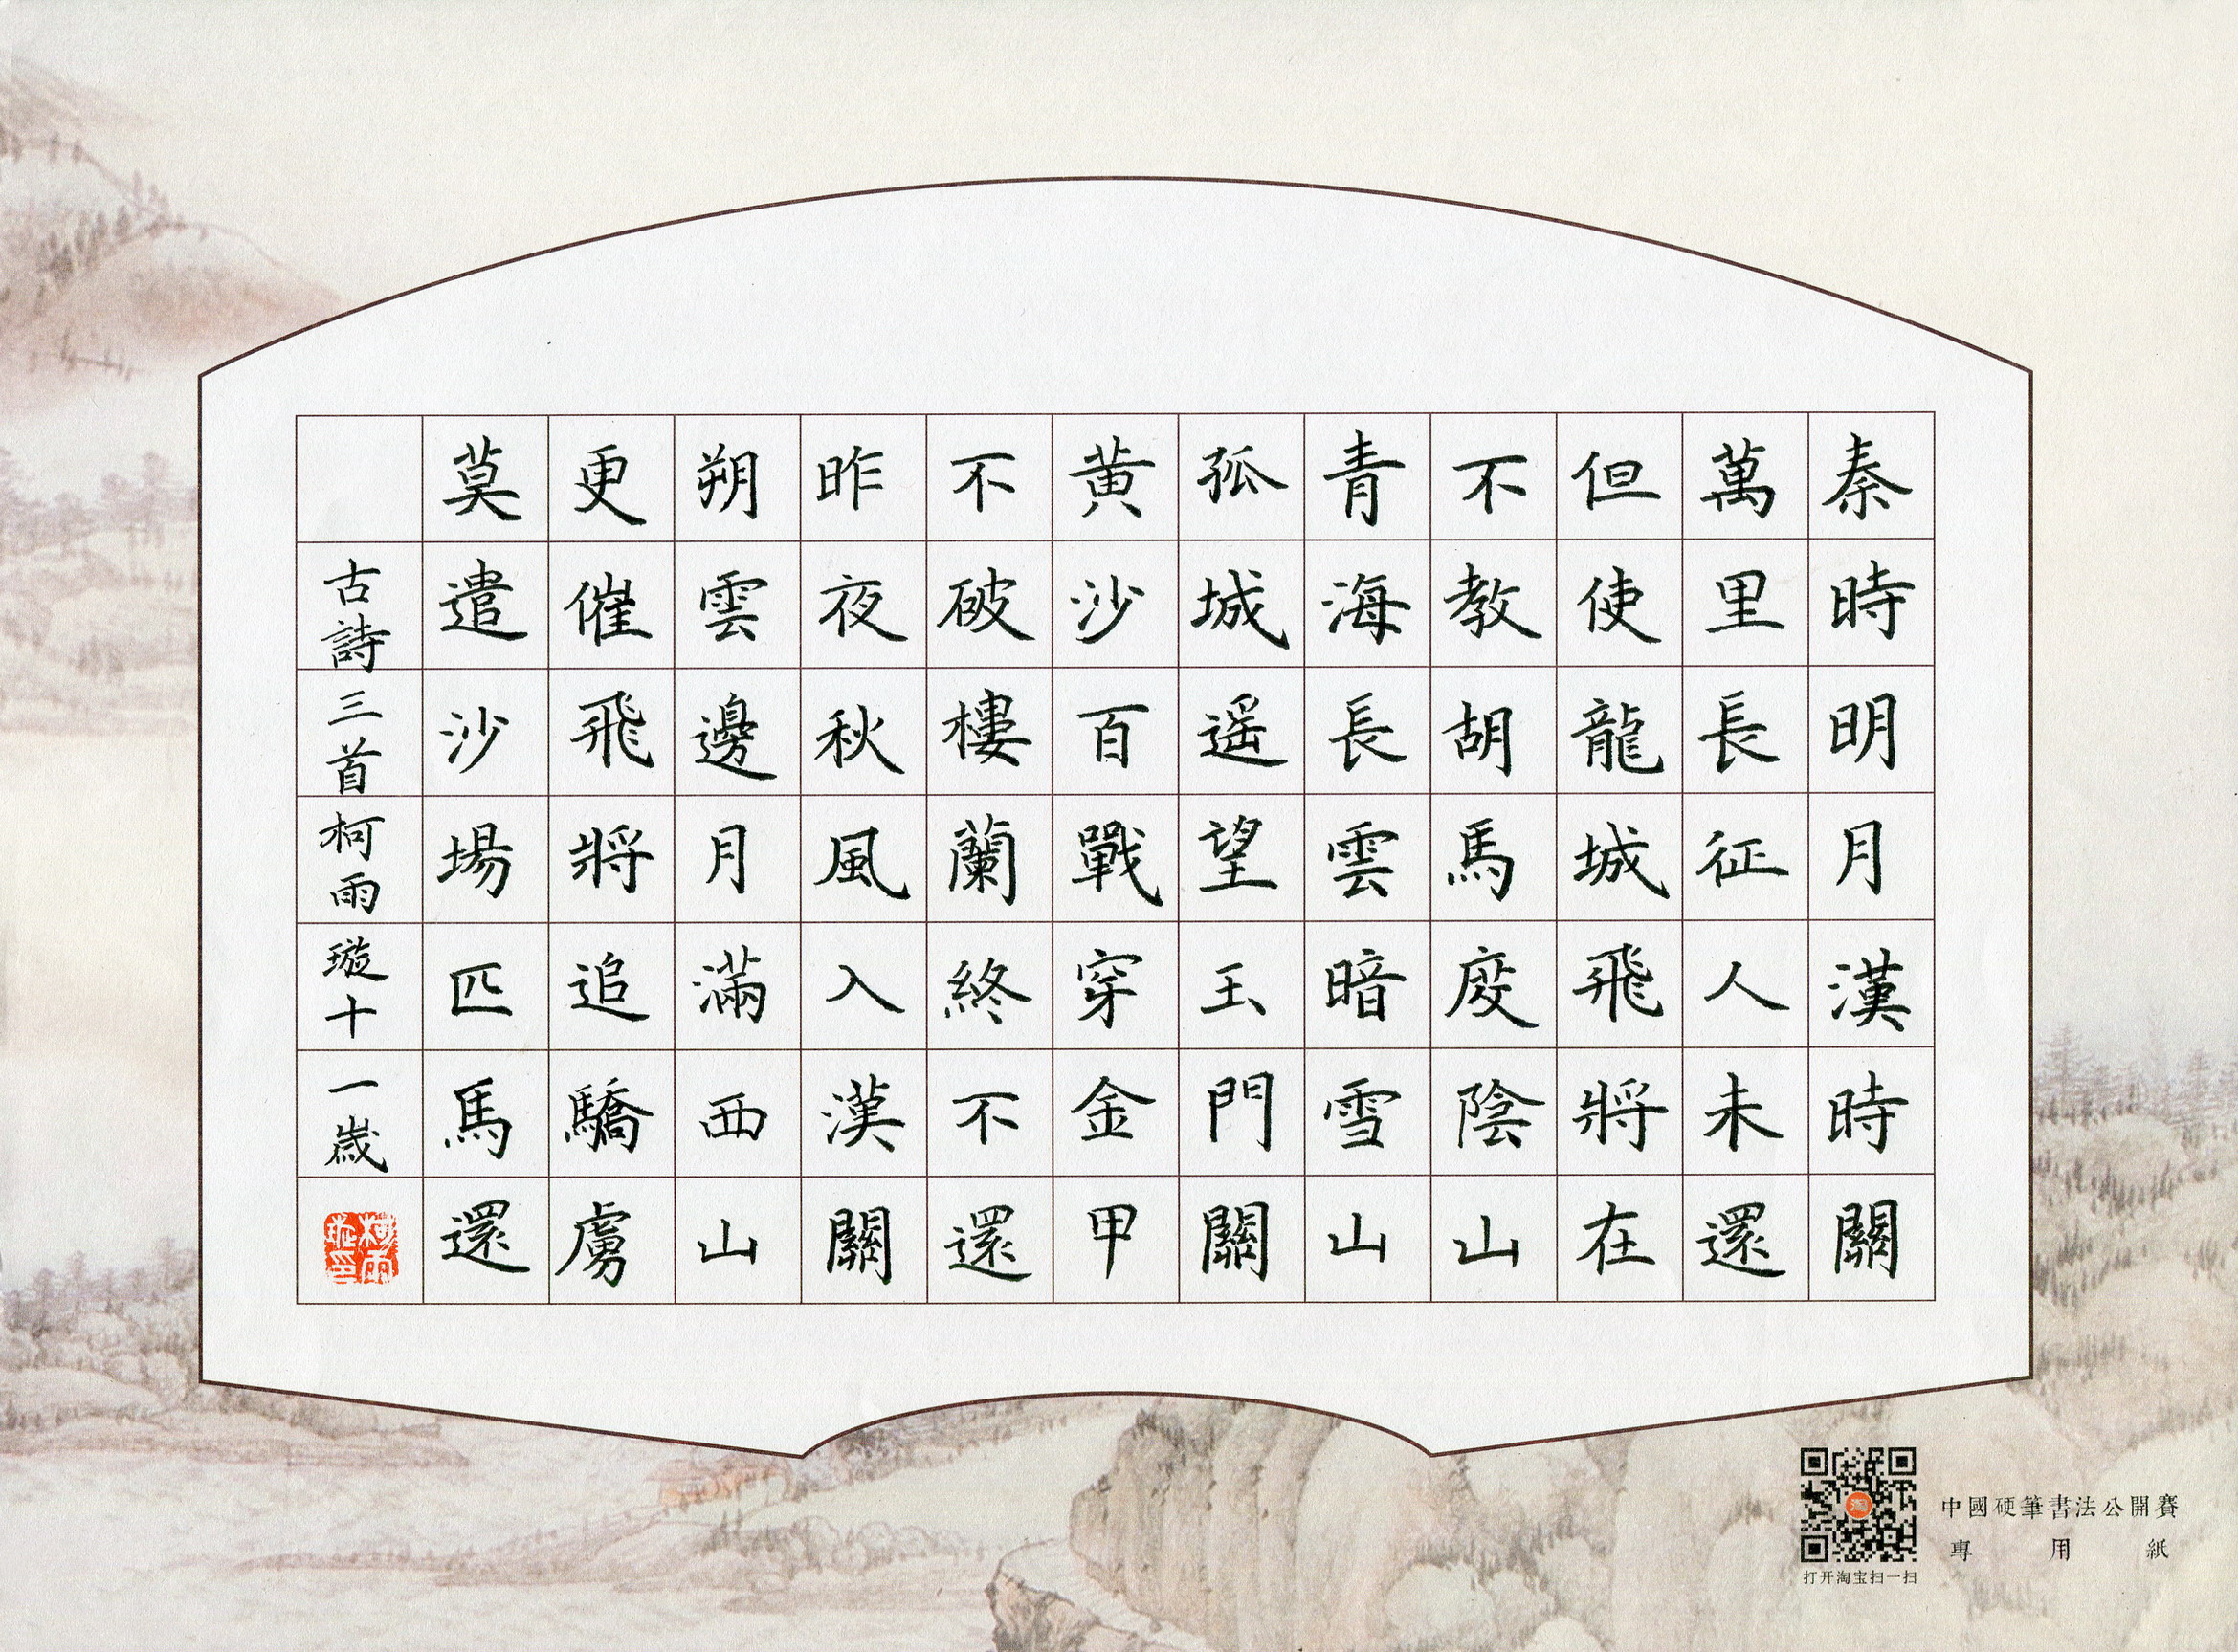 秦時明月漢時關
萬里長征人未還
但使龍城飛將在
不教胡馬度陰山
青海長雲暗雪山
孤城遥望玉門關
黄沙百戰穿金甲
不破樓蘭終不還
昨夜秋風入漢關
朔雲邊月滿西山
更催飛將追驕虜
莫遣沙場匹馬還
古詩三首柯雨璇十一歲
柯雨璇印
淘
中國硬筆書法公開賽
專用紙
打开淘宝扫一扫